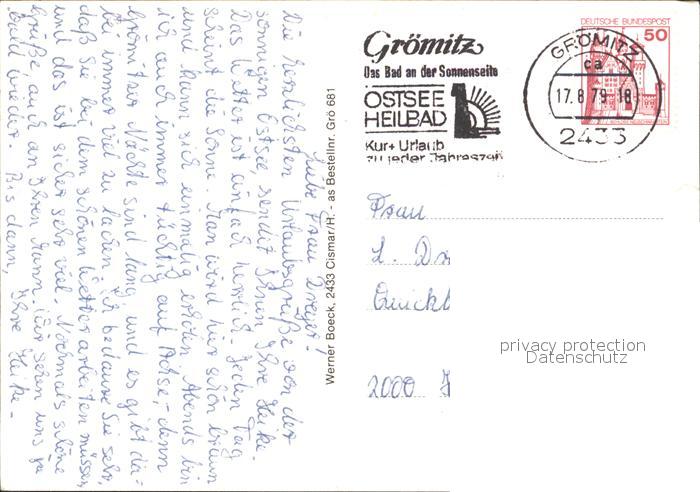 Liebe Frau Dreyer!
Die herzlichsten Urlaubsgrüße von der
sonnigen Ostsee sendet Ihnen Ihre Heike.
Das Wetter ist einfach herrlich. Jeden Tag
scheint die Sonne. Man wird hier schön braun
und kann sich einmalig erholen. Abends bin
ich auch immer tüchtig auf Achse, denn
Grömitzer Nächte sind lang und es gibt da-
bei immer viel zu lachen. Ich bedaure Sie sehr,
daß Sie bei dem schönen Wetter arbeiten müssen
und das ist sicher sehr viel. Nochmals schöne
Grüße auch an Ihren Mann. Wir sehen uns ja
bald wieder. Bis dann, Ihre Heike-
Werner Boeck, 2433 Cismar/H. - as Bestellnr. Grö 681
Grömitz
Das Bad an der Sonnenseite
OSTSEE
HEILBAD
Kur+ Urlaub
zu jeder Jahreszeit
GRÖMITZ
ca
17.8.79-18
2433
DEUTSCHE BUNDESPOST
50
Frau
L. Dr
Quickb
2000 H
privacy protection
Datenschutz